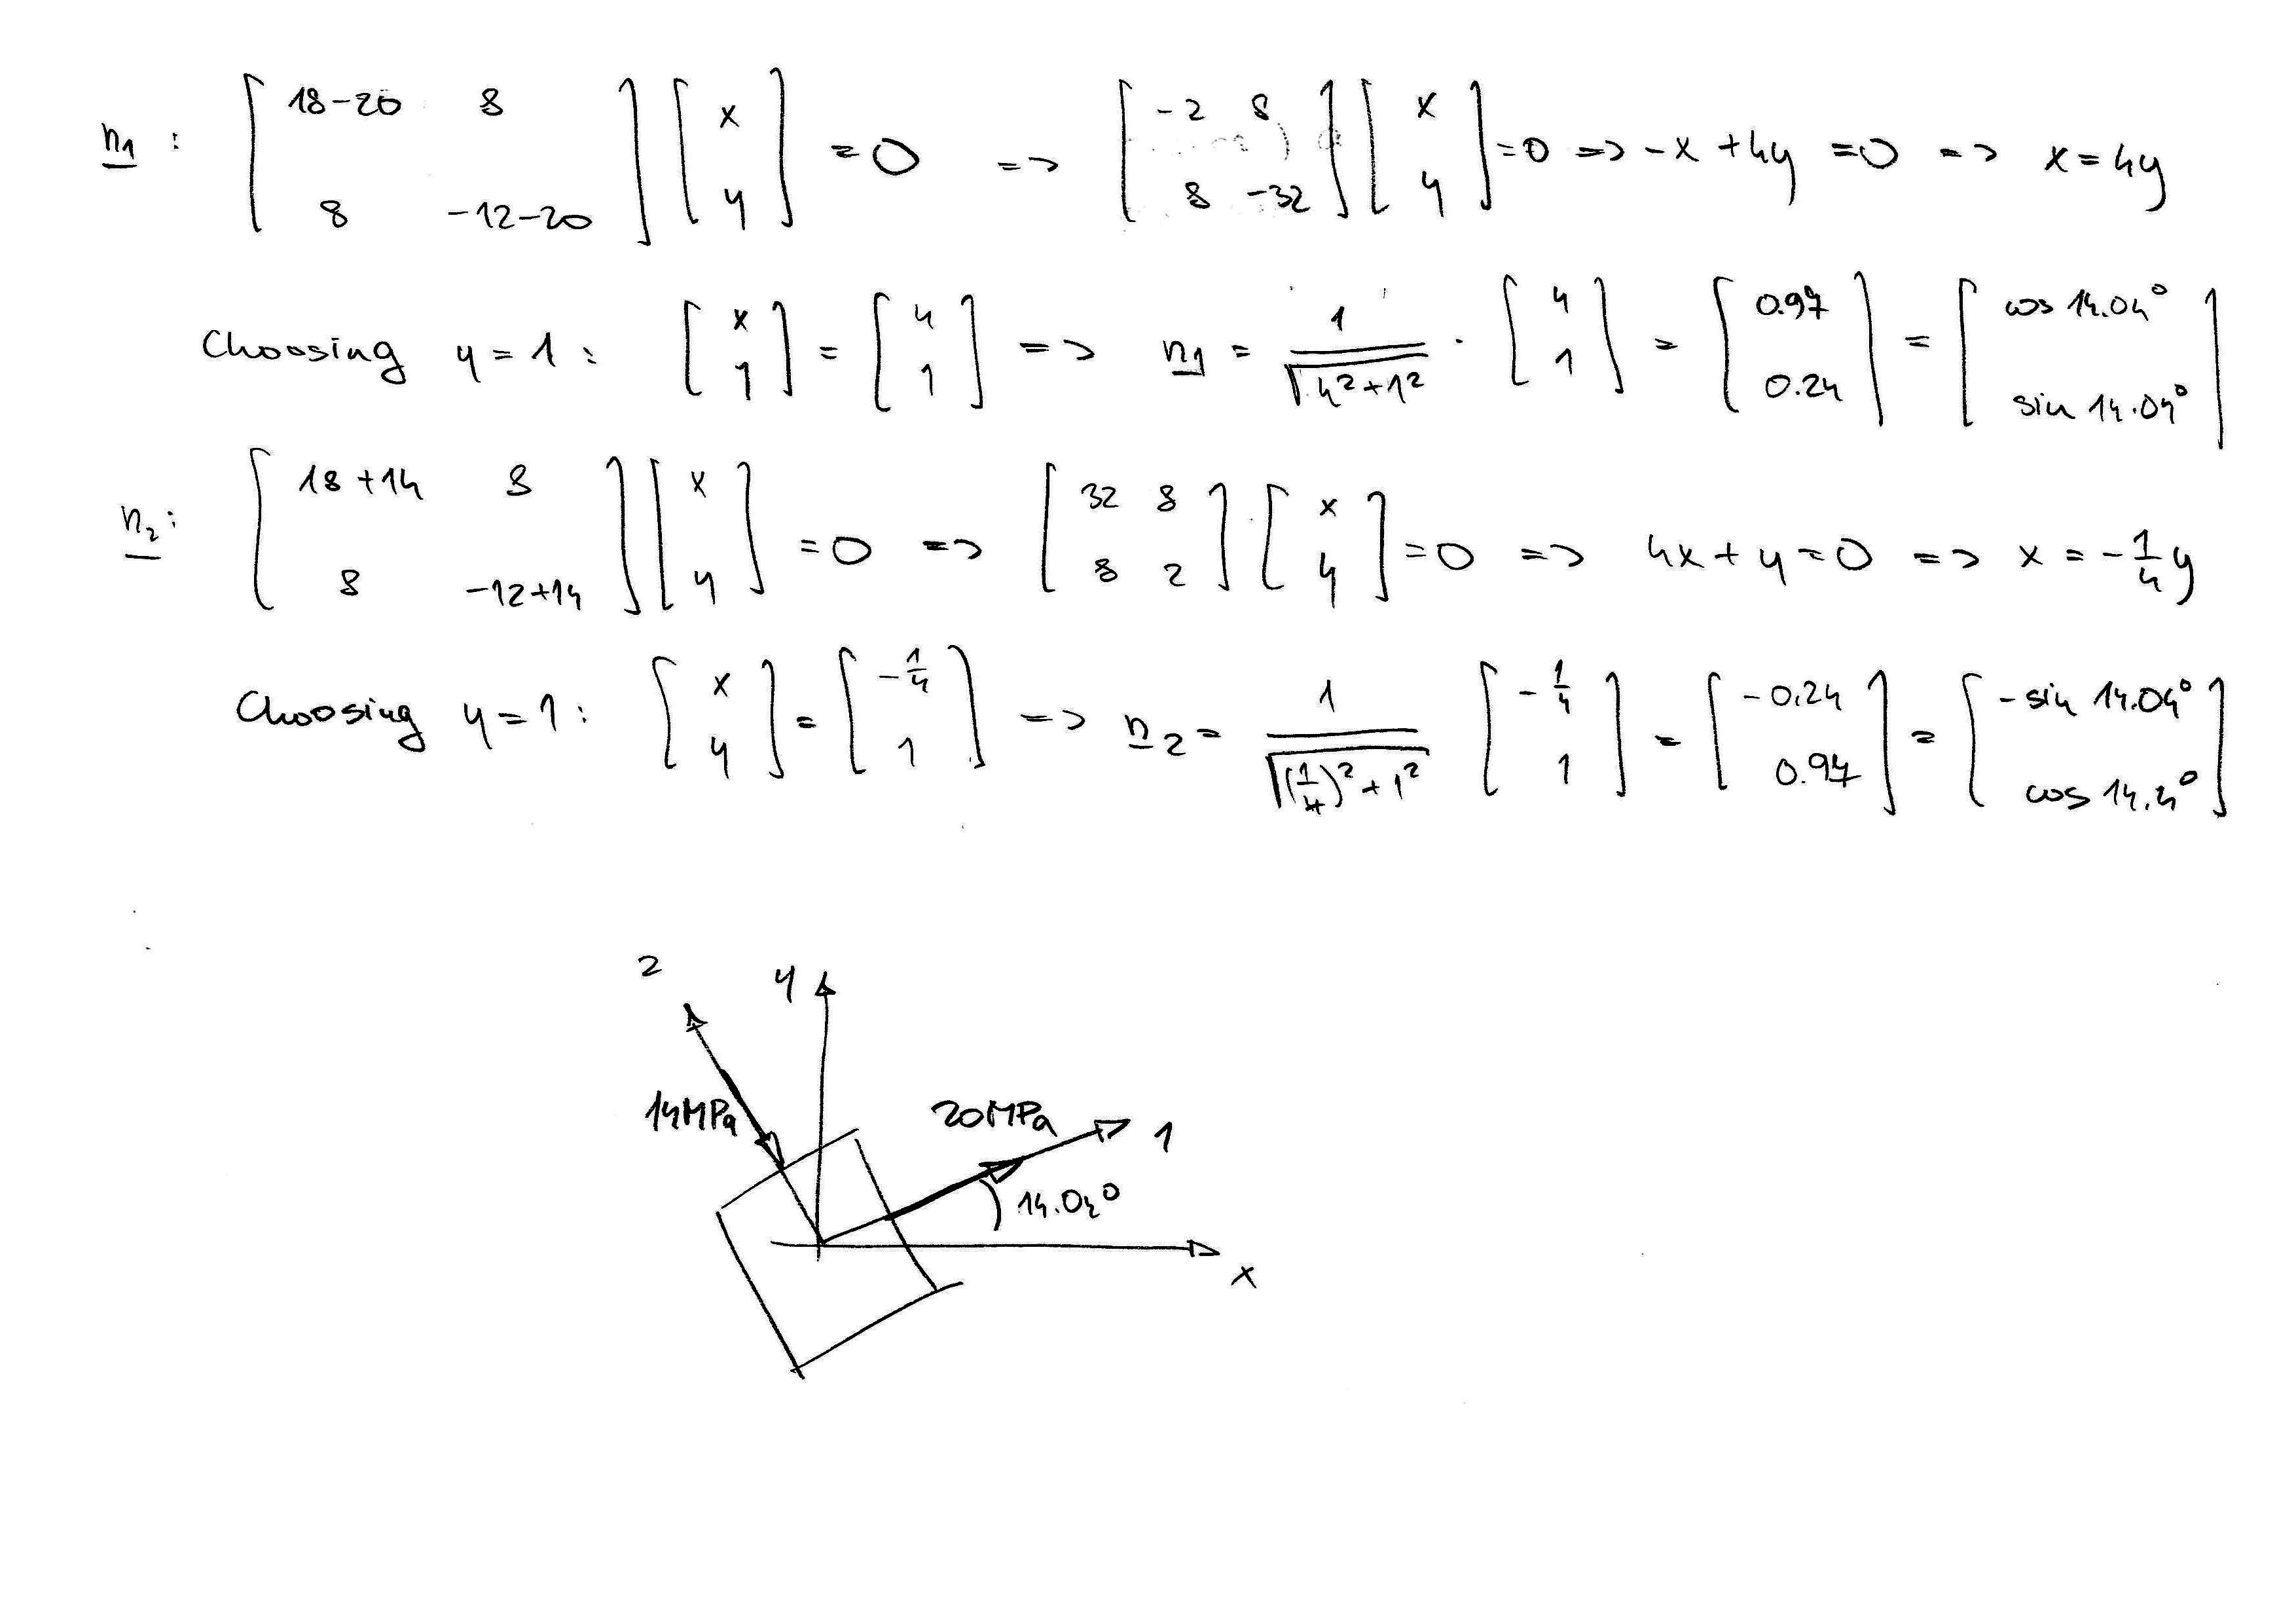 n1 : [18-20 8; 8 -12-20] [x; y] = 0 => [-2 8; 8 -32] [x; y] = 0 => -x + 4y = 0 => x = 4y
Choosing y = 1 : [x; 1] = [4; 1] => n1 = 1/√(4²+1²) · [4; 1] = [0.97; 0.24] = [cos 14.04°; sin 14.04°]
n2 : [18+14 8; 8 -12+14] [x; y] = 0 => [32 8; 8 2] [x; y] = 0 => 4x + y = 0 => x = -1/4 y
Choosing y = 1 : [x; y] = [-1/4; 1] => n2 = 1/√((1/4)²+1²) [-1/4; 1] = [-0.24; 0.97] = [-sin 14.04°; cos 14.4°]
2 y
14MPa 20MPa 1
14.04°
x